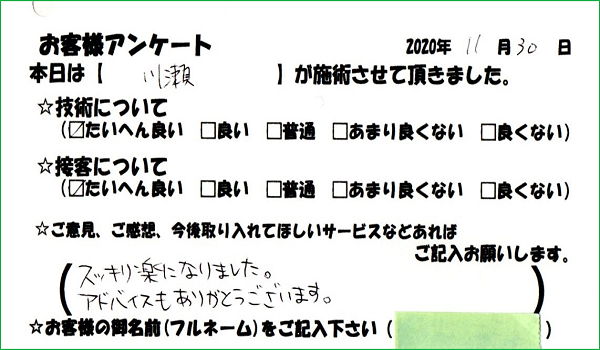 お客様アンケート 2020年 11 月 30 日
本日は【 川瀬 】が施術させて頂きました。
☆技術について
(☑たいへん良い □良い □普通 □あまり良くない □良くない)
☆接客について
(☑たいへん良い □良い □普通 □あまり良くない □良くない)
☆ご意見、ご感想、今後取り入れてほしいサービスなどあれば
ご記入お願いします。
(スッキリ楽になりました。
アドバイスもありがとうございます。)
☆お客様の御名前(フルネーム)をご記入下さい( )